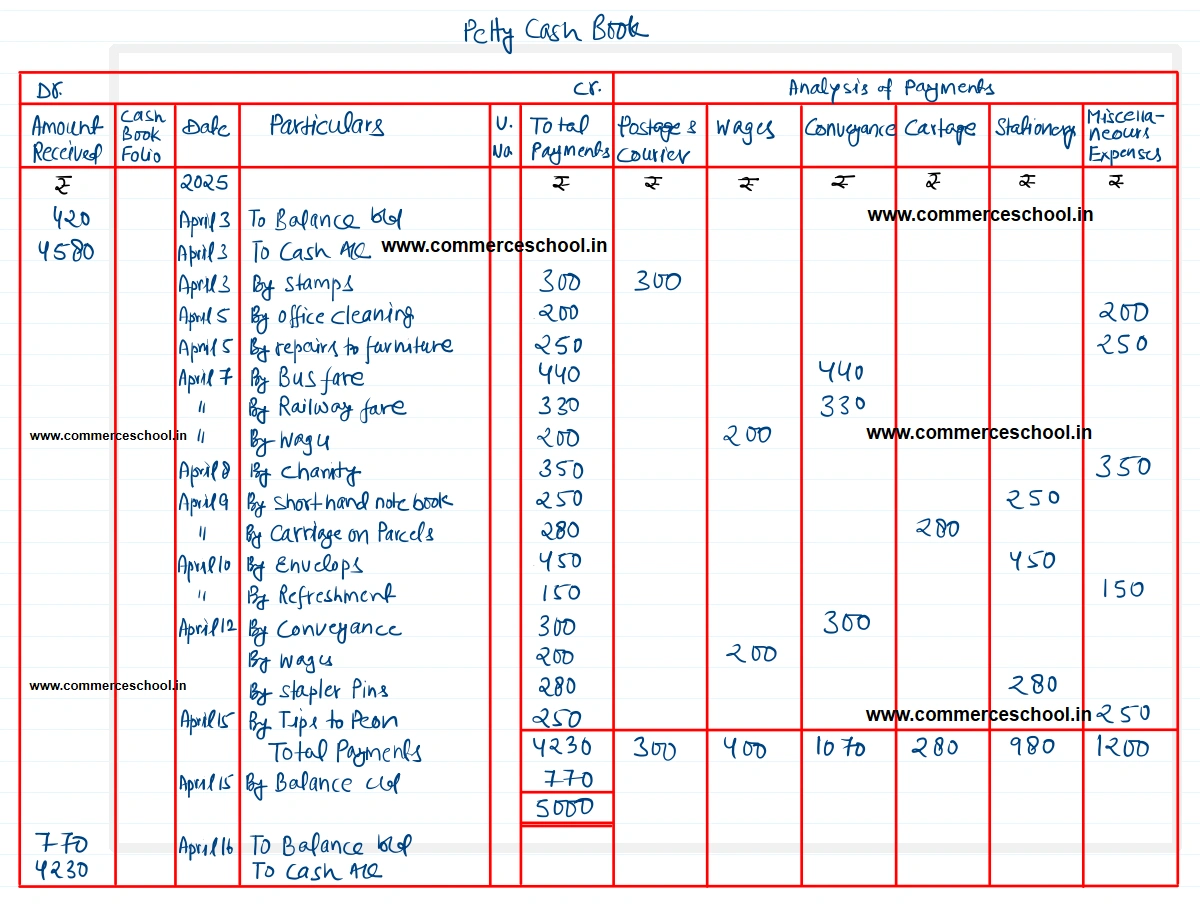 Petty Cash Book
Dr. Cr. Analysis of Payments
Amount Received Cash Book Folio Date Particulars V. No Total Payments Postage & Courier Wages Conveyance Cartage Stationery Miscella-neours Expenses
₹ 2025 ₹ ₹ ₹ ₹ ₹ ₹ ₹
420 April 3 To Balance b/d www.commerceschool.in
4580 April 3 To Cash A/C www.commerceschool.in
April 3 By Stamps 300 300
April 5 By office cleaning 200 200
April 5 By repairs to furniture 250 250
April 7 By Bus fare 440 440
" By Railway fare 330 330
www.commerceschool.in " By wages 200 200 www.commerceschool.in
April 8 By Charity 350 350
April 9 By Shorthand note book 250 250
" By Carriage on Parcels 280 280
April 10 By Envelops 450 450
" By Refreshment 150 150
April 12 By Conveyance 300 300
By wages 200 200
www.commerceschool.in By Stapler Pins 280 280
April 15 By Tips to Peon 250 www.commerceschool.in 250
Total Payments 4230 300 400 1070 280 980 1200
April 15 By Balance c/d 770
5000
770 April 16 To Balance b/d
4230 To Cash A/C